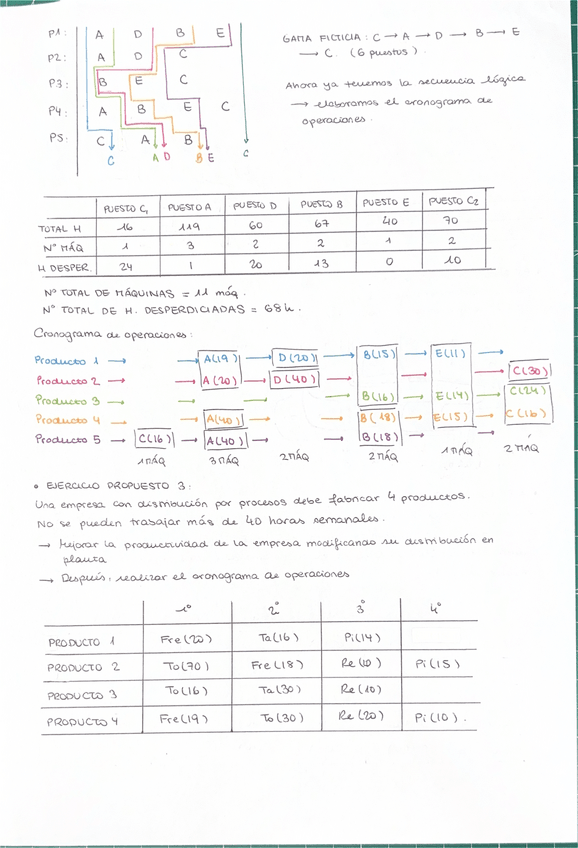 P1: A D B E
P2: A D C
P3: B E C
P4: A B E C
P5: C A B
C A D B E C
GAMA FICTICIA: C → A → D → B → E
→ C. (6 puestos).
Ahora ya tenemos la secuencia lógica
→ elaboramos el cronograma de
operaciones.
PUESTO C1 PUESTO A PUESTO D PUESTO B PUESTO E PUESTO C2
TOTAL H 16 119 60 67 40 70
Nº MÁQ 1 3 2 2 1 2
H DESPER. 24 1 20 13 0 10
Nº TOTAL DE MÁQUINAS = 11 máq.
Nº TOTAL DE H. DESPERDICIADAS = 68 h.
Cronograma de operaciones:
Producto 1 → → A(19) → D(20) → B(15) → E(11) →
Producto 2 → → A(20) → D(40) → → C(30)
Producto 3 → → → → B(16) → E(14) → C(24)
Producto 4 → → A(40) → → B(18) → E(15) → C(16)
Producto 5 → C(16) → A(40) → → B(18) → →
1 MÁQ 3 MÁQ 2 MÁQ 2 MÁQ 1 MÁQ 2 MÁQ
• EJERCICIO PROPUESTO 3:
Una empresa con distribución por procesos debe fabricar 4 productos.
No se pueden trabajar más de 40 horas semanales.
→ Mejorar la productividad de la empresa modificando su distribución en
planta
→ Después, realizar el cronograma de operaciones
1º 2º 3º 4º
PRODUCTO 1 Fre(20) Ta(16) Pi(14)
PRODUCTO 2 To(70) Fre(18) Re(10) Pi(15)
PRODUCTO 3 To(16) Ta(30) Re(10)
PRODUCTO 4 Fre(19) To(30) Re(20) Pi(10).